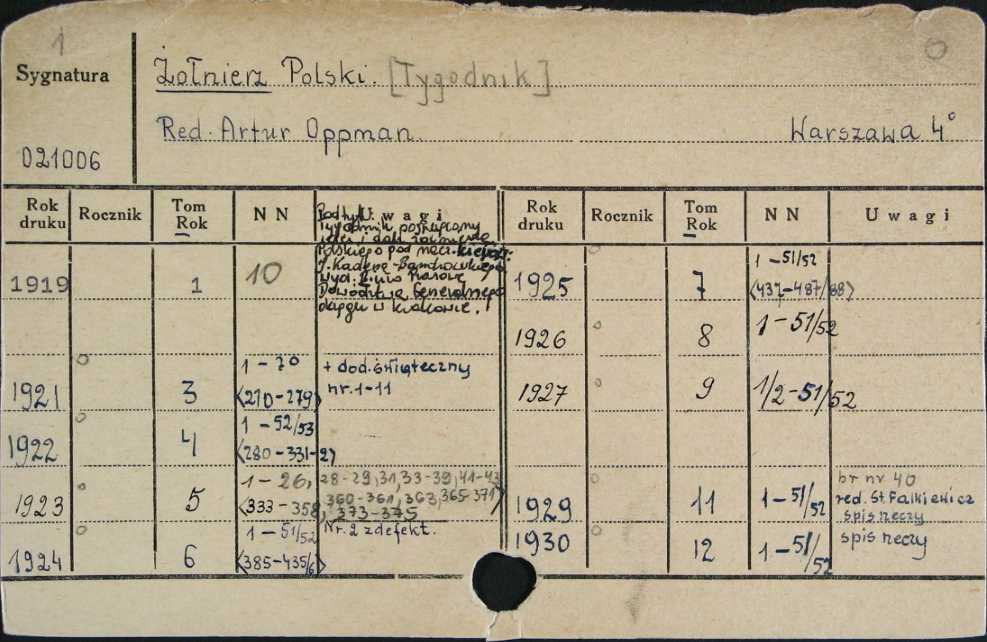 1
0
Sygnatura
Żołnierz Polski. [Tygodnik]
Red. Artur Oppman. Warszawa 4°
021006
Rok druku Rocznik Tom Rok N N Uwagi
1919 1 10
Podtyt.
Tygodnik poświęcony
i doli żołnierza
Polskiego pod
J. Kadena-Bandrowskiego
wyd.
Dowództwa Generalnego
okręgu w Krakowie.
1921 3 1-70 + dod. świąteczny
<210-279> nr. 1-11
1922 4 1-52/53
<280-331-2>
1923 5 1-26, 28-29, 31, 33-39, 41-43
<333-358, 360-361, 363, 365-371>
, 373-375
1924 6 1-51/52 Nr. 2 zdefekt.
<385-435/6>
Rok druku Rocznik Tom Rok N N Uwagi
1925 7 1-51/52
<437-487/88>
1926 8 1-51/52
1927 9 1/2-51/52
1929 11 1-51/52 br nr 40
red. St. Falkiewicz
spis rzeczy
1930 12 1-51/52 spis rzeczy